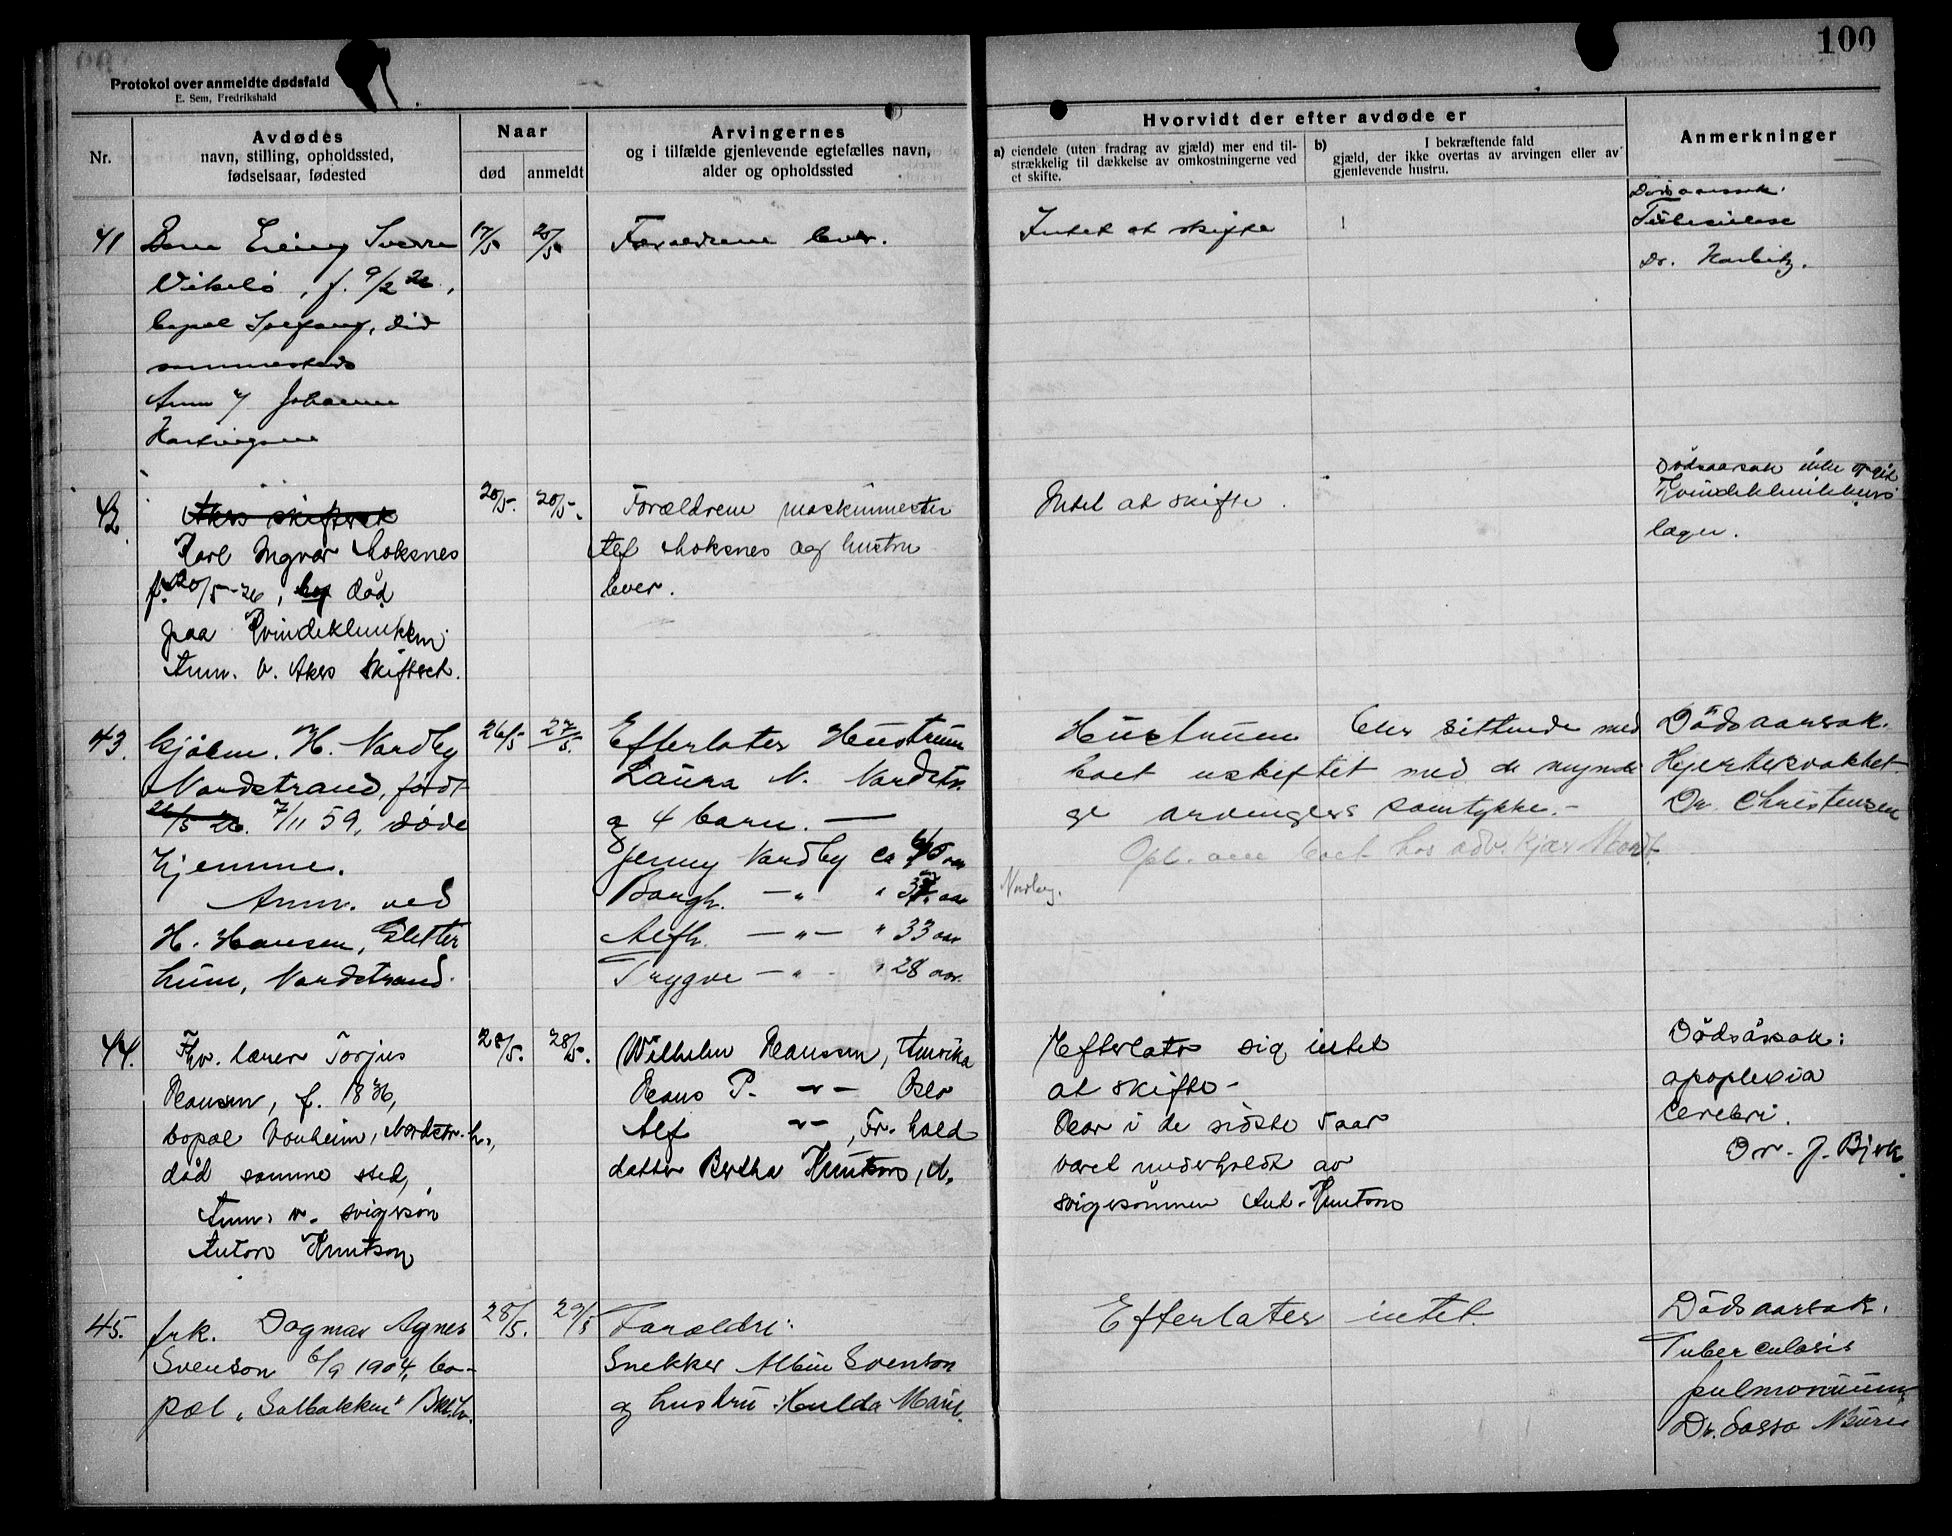 100
Protokol over anmeldte dødsfald
E. Sem, Fredrikshald
Nr.
Avdødes
navn, stilling, opholdssted,
fødselsaar, fødested
Naar
død
anmeldt
Arvingernes
og i tilfælde gjenlevende egtefælles navn,
alder og opholdssted
Hvorvidt der efter avdøde er
a) eiendele (uten fradrag av gjæld) mer end til-
strækkelig til dækkelse av omkostningerne ved
et skifte.
b) I bekræftende fald
gjæld, der ikke overtas av arvingen eller av
gjenlevende hustru.
Anmerkninger
41
Barn Erling Sverre
f. 9/2 26,
bopæl
død
sammesteds
Anm v/ Johanne
17/5
20/5
Forældrene lever.
Intet at skifte
Dødsaarsak.
Tuberkulose
Dr. Harbitz.
42
Akers skifteret
Karl Ingvar Moksnes
f. 20/5-26, død
paa Kvindeklinikken
Anm. v. Akers Skifteret.
20/5.
20/5.
Forældrene maskinmester
Moksnes og hustru
lever.
Intet at skifte.
Dødsaarsak ikke opgit
Kvindeklinikkens
læger.
43.
H. Nordby
Nordstrand, født
26/5 26. 7/11 59, døde
hjemme.
Anm. ved
H. Hansen,
Nordstrand.
26/5
27/5.
Efterlater Hustruen
Laura N. Nordstr.
og 4 barn. —
Jenny Nordby ca 40 aar
Borgh. — " " 37 aar
Alfh. — " — " 33 aar
Trygve — " - " 28 aar.
Hustruen blir sittende med
boet uskiftet med de myndi
ge arvingers samtykke. -
Opl. om boet hos adv. Kjær
Nordby.
Dødsaarsak.
Hjertesvakhet.
Dr. Christensen
44.
Fhv. lærer Torjus
Hansen, f. 1836,
bopæl Vonheim, Nordstr. h.,
død samme sted,
Anm. v. svigersøn
Anton Knutson
28/5.
28/5.
Wilhelm Hanssen, Amerika
Hans P. — " — Oslo
Alf — " —, Fr. hald
datter Bertha Knutson, N.
Efterlater sig intet
at skifte -
Har i de sidste 5 aar
været underholdt av
svigersønnen Ant. Knutson
Dødsårsak:
apoplexia
cerebri.
Dr. J. Bjerk
45.
frk. Dagmar Agnes
Svenson 6/9 1904, bo-
pæl "Solbakken"
28/5.
29/5
Forældre:
Snekker Albin Svenson
og hustru Hulda Marie.
Efterlater intet.
Dødsaarsak.
Tuberculosis
pulmonum
Dr.